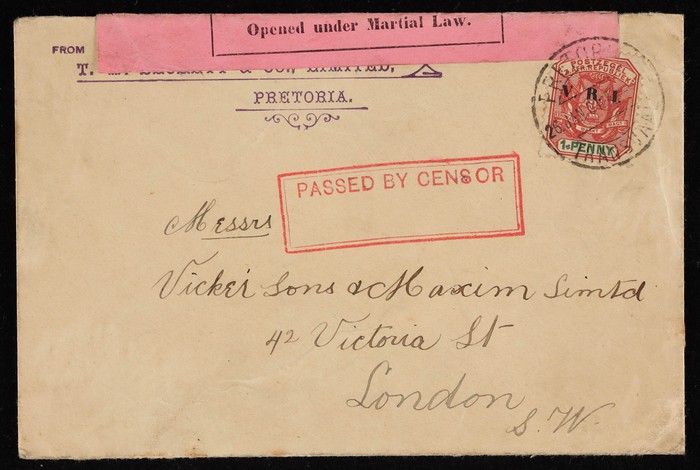 Opened under Martial Law.
FROM
& Co., LIMITED,
PRETORIA.
POSTZEGEL
V. R. I.
1d PENNY
PRETORIA
TRANSVAAL
PASSED BY CENSOR
Messrs
Vicker Sons & Maxim Limtd
42 Victoria St
London
S.W.